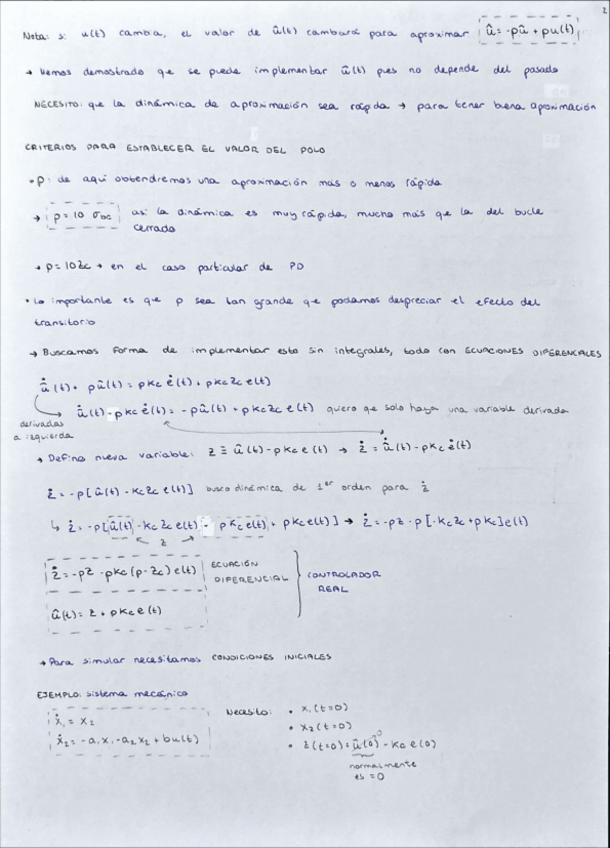 2
Nota: si u(t) cambia, el valor de û(t) cambiará para aproximar û̇ = -pû + pu(t)
→ Hemos demostrado que se puede implementar û(t) pues no depende del pasado
NECESITO: que la dinámica de aproximación sea rápida → para tener buena aproximación
CRITERIOS PARA ESTABLECER EL VALOR DEL POLO
• p: de aquí obtendremos una aproximación más o menos rápida
→ p = 10 σbc así la dinámica es muy rápida, mucho más que la del bucle
cerrado
→ p = 10zc → en el caso particular de PD
• Lo importante es que p sea tan grande que podamos despreciar el efecto del
transitorio
→ Buscamos forma de implementar esto sin integrales, todo con ECUACIONES DIFERENCIALES
û̇(t) + pû(t) = pKc ė(t) + pKc zc e(t)
û̇(t) - pKc ė(t) = -pû(t) + pKc zc e(t) quiero que solo haya una variable derivada
derivadas
a izquierda
→ Defino nueva variable: z ≡ û(t) - pKc e(t) → ż = û̇(t) - pKc ė(t)
ż = -p[û(t) - Kc zc e(t)] busco dinámica de 1er orden para ż
↳ ż = -p[û(t) - Kc zc e(t) - pKc e(t) + pKc e(t)] → ż = -pz - p[-Kc zc + pKc]e(t)
z
ż = -pz - pKc(p - zc)e(t) ECUACIÓN
DIFERENCIAL
CONTROLADOR
REAL
û(t) = z + pKc e(t)
→ Para simular necesitamos CONDICIONES INICIALES
EJEMPLO: sistema mecánico
ẋ1 = x2
ẋ2 = -a1x1 - a2x2 + bu(t)
Necesito: • x1(t=0)
• x2(t=0)
• z(t=0) = û(0) - Kc e(0)
0
normalmente
es = 0